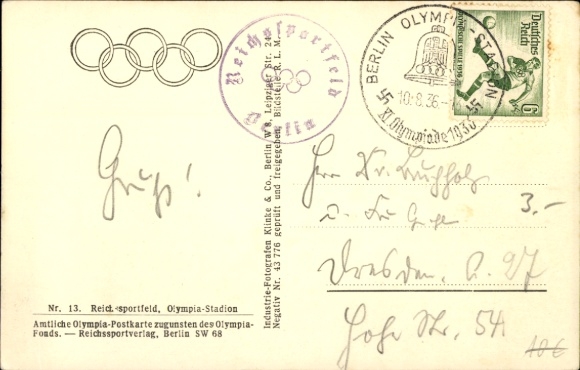 Reichssportfeld
Berlin
BERLIN OLYMPIA-STADION
10.8.36
XI. Olympiade 1936
Deutsches
Reich
OLYMPISCHE SPIELE 1936
6
Gruß!
Herr Dr. Buchholz
3.-
Dresden. A. 27
Hohe Str. 54
10€
Industrie-Fotografen Klinke & Co., Berlin W 8, Leipziger Str. 24
Negativ Nr. 43 776 geprüft und freigegeben, Bildstelle R. L. M.
Nr. 13. Reichssportfeld, Olympia-Stadion
Amtliche Olympia-Postkarte zugunsten des Olympia-
Fonds. — Reichssportverlag, Berlin SW 68